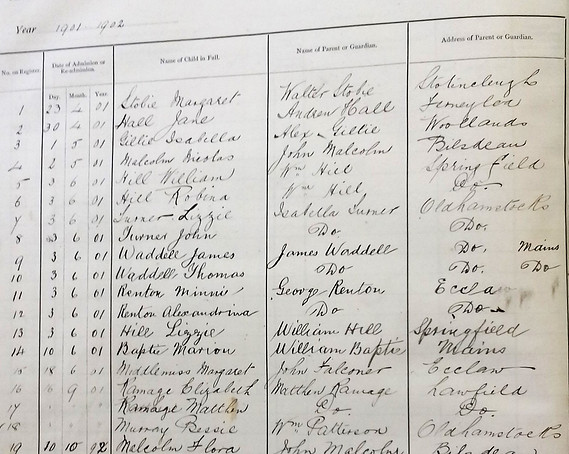 Year 1901 1902
No. on Register. Date of Admission or Re-admission. Name of Child in Full. Name of Parent or Guardian. Address of Parent or Guardian.
Day. Month. Year.
1 23 4 01 Stobie Margaret Walter Stobie
2 30 4 01 Hall Jane Andrew Hall
3 1 5 01 Giltie Isabella Alex Giltie Woollands
4 2 5 01 Malcolm Nicolas John Malcolm Bilsdean
5 3 6 01 Hill William Wm Hill Springfield
6 3 6 01 Hill Robina Wm Hill Do
7 3 6 01 Turner Lizzie Isabella Turner Oldhamstocks
8 3 6 01 Turner John Do Do.
9 3 6 01 Waddell James James Waddell Do. Mains
10 3 6 01 Waddell Thomas Do Do. Do
11 3 6 01 Renton Minnie George Renton Eccla
12 3 6 01 Renton Alexandrina Do Do
13 3 6 01 Hill Lizzie William Hill Springfield
14 10 6 01 Baptie Marion William Baptie Mains
15 18 6 01 Middlemiss Margaret John Falconer Ecclaw
16 16 9 01 Ramage Elizabeth Matthew Ramage Lawfield
17 " " " Ramage Matthew Do. Do.
18 " " " Murray Bessie Wm Patterson Oldhamstocks
19 10 10 Malcolm Flora John Malcolm Bilsdean